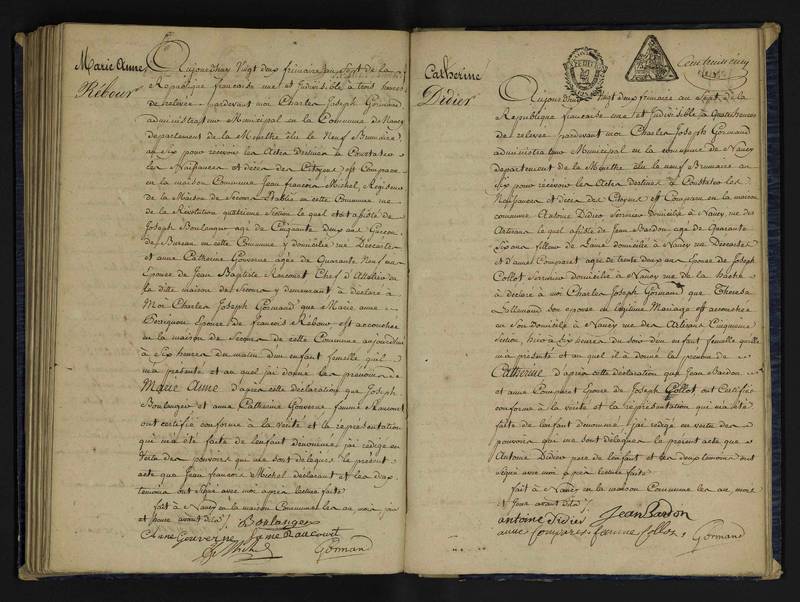 Marie Anne
Ribour
Aujourdhuy Vingt deux frimaire an Sept de la
Republique francaise une et Indivisible a trois heures
de relevée pardevant moi Charles Joseph Gormand
administrateur Municipal en la Commune de Nancy
departement de la Meurthe élu le Neuf Brumaire
an Six pour recevoir les Actes Destinés à Constater
les Naissances et décès des Citoyens est Comparu
en la maison Commune Jean francois Michel, Regisseur
de la Maison de Secours Etablie en cette Commune rue
de la Révolution quatrieme Section le quel etoit assisté de
Joseph Boulanger agé de Cinquante deux ans Garcon
de Bureau en cette Commune y domicilié rue Descartes
et anne Catherine Gouverne agée de Quarante Neuf ans
Epouse de Jean Baptiste Chef d'Attelier de
la dite maison de Secours y demeurant a déclaré à
Moi Charles Joseph Gormand que Marie anne
Epouse de francois Ribour est accouchée
en la maison de Secours de cette Commune aujourdhui
à Six heures du matin d'un enfant femelle quil
m'a presenté et au quel jai donné les prénoms de
Marie Anne d'après cette déclaration que Joseph
Boulanger et anne Catherine Gouverne femme Raucourt
ont certifié conforme à la vérité et la représentation
qui m'a été faite de lenfant denommé jai rédigé en
Vertu des pouvoirs qui me sont délégués le présent
acte que Jean francois Michel déclarant et les deux
temoins ont Signé avec moi après lecture faite
fait à Nancy en la maison Commune les an mois jour
et heure avant dits
Boulanger
Anne Gouverne feme Raucourt
Michel Gormand
Catherine
Didier
Aujourdhuy Vingt deux frimaire an Sept de la
Republique francaise une et Indivisible a Quatre heures
de relevée pardevant moi Charles Joseph Gormand
administrateur Municipal en la commune de Nancy
departement de la Meurthe élu le neuf Brumaire an
Six pour recevoir les Actes destinés à Constater les
Naissances et décès des Citoyens est Comparu en la maison
commune Antoine Didier Serrurier domicilié à Nancy rue des
Artisans le quel assisté de Jean Bardon agé de Quarante
Six ans domicilié à Nancy rue Descartes
et d'anne Comparet agée de trente deux ans Epouse de Joseph
Collot Serrurier domicilié à Nancy rue de la
à déclaré à moi Charles Joseph Gormand que Therese
Lallemand son epouse en légitime Mariage est accouchée
en Son Domicile à Nancy rue des Artisans Cinquieme
Section hier à Six heures du Soir d'un enfant femelle quelle
m'a présenté et au quel il à donné le prénom de
Catherine d'après cette déclaration que Jean Bardon
et anne Comparet Epouse de Joseph Collot ont Certifié
conforme à la vérité et la représentation qui m'a été
faite de lenfant dénommé jai redigé en vertu des
pouvoirs qui me sont délégués le présent acte que
Antoine Didier pere de lenfant et les deux temoins ont
signé avec moi après lecture faite
fait à Nancy en la maison Commune les an mois
et jour avant dits
antoine Didier Jean Bardon
anne Comparet femme Collot Gormand